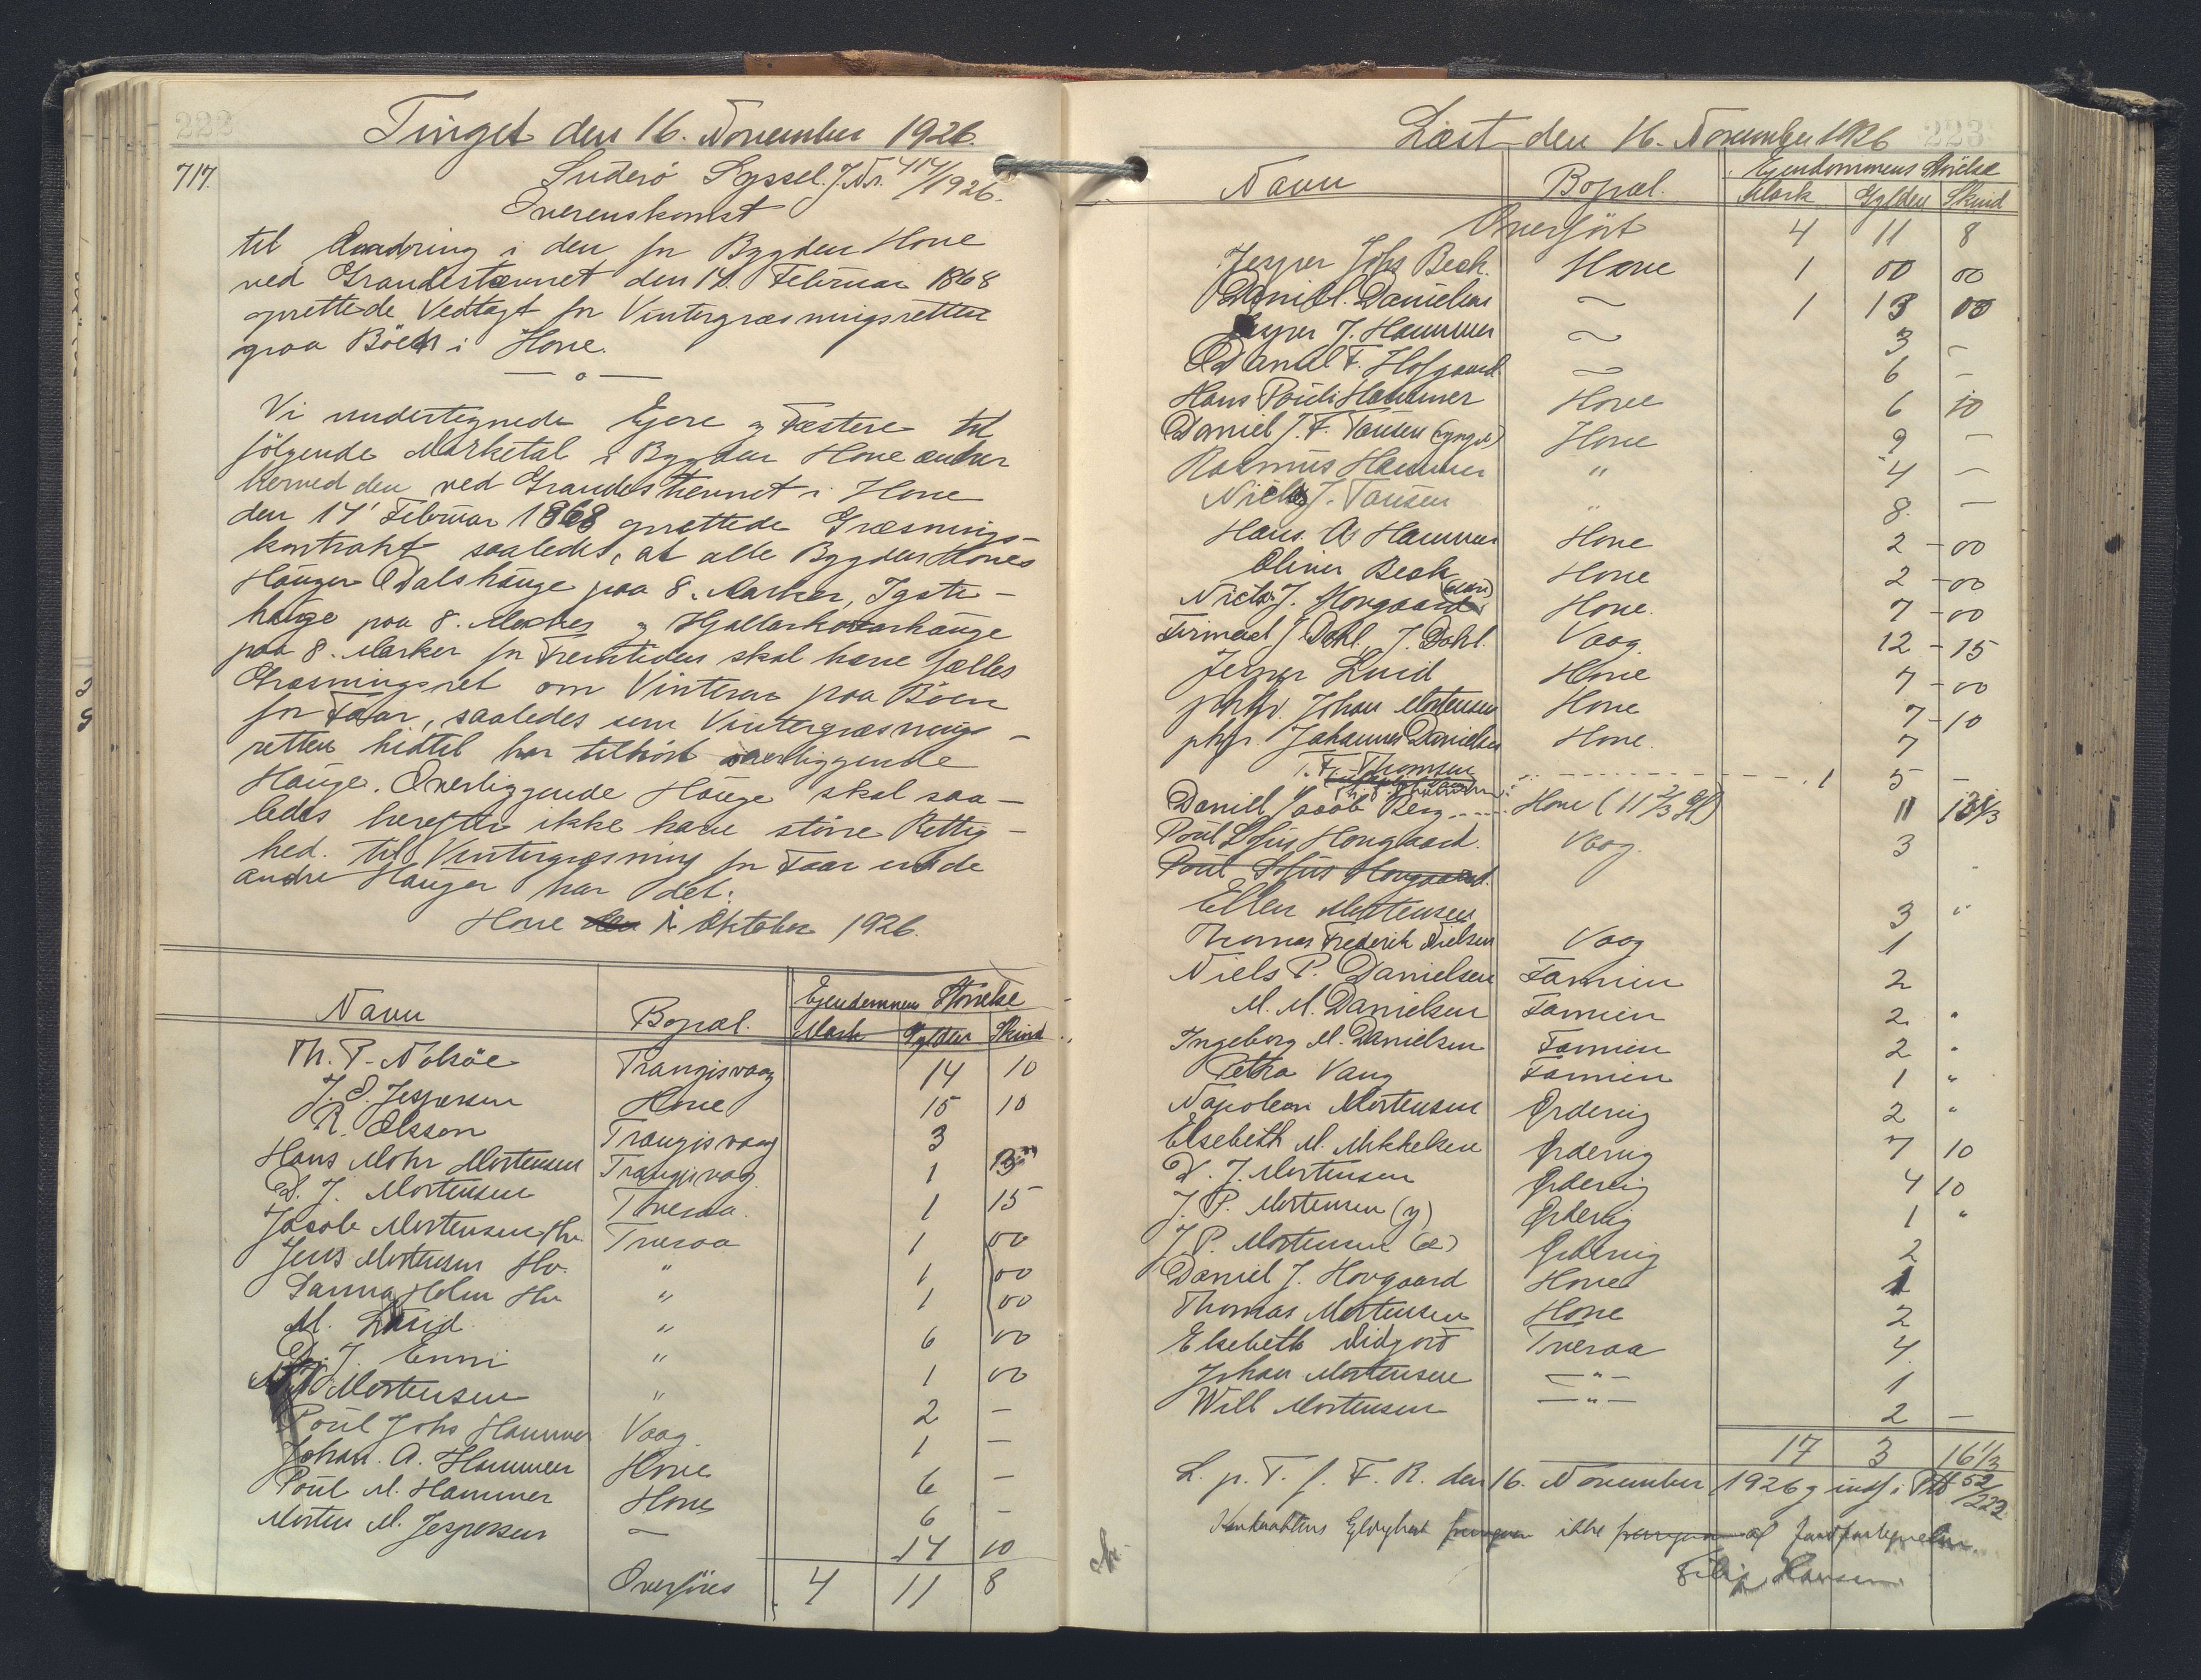 222
Tinget den 16. November 1926.
717.
Suderö Syssel. J.Nr. 414/1926.
Overenskomst
til Ændring i den for Bygden Hove
ved Grandestævnet den 14. Februar 1868
oprettede Vedtægt for Vintergræsningsretten
paa Böen i Hove.
— o —
Vi undertegnede Ejere og Fæstere til
fölgende Marketal i Bygden Hove ændrer
herved den ved Grandestevnet i Hove
den 14' Februar 1868 oprettede Græsnings-
kontrakt saaledes, at alle Bygden Hoves
Hauger Odalshauge paa 8. Marker, Igste-
hauge paa 8. Marker og Hjallarkottarhauge
paa 8. Marker for Fremtiden skal have fælles
Græsningsret om Vinteren paa Böen
for Faar, saaledes som Vintergræsnings-
retten hidtil har tilhört overliggende
Hauge. Overliggende Hauge skal saa-
ledes herefter ikke have större Rettig-
hed til Vintergræsning for Faar end de
andre Hauger har det.
Hove i Oktober 1926.
Navn Bopæl. Ejendommens Störrelse
Mark Gylden Skind
Th. P. Nolsöe Trangisvaag 14 10
J. S. Jespersen Hove 15 10
R. Olsson Trangisvaag 3
Hans Mohr Mortensen Trangisvaag 1 13
D. J. Mortensen Tveraa. 1 15
Jacob Mortensen Hv. Tveraa 1 00
Jens Mortensen Hv. " 1 00
Sanna Holm Hv " 1 00
M. Lusid " 6 00
D. J. Enni " 1 00
Mortensen " 2 —
Poul Johs Hammer Vaag. 1 —
Johan. A. Hammer Hove 6 —
Poul M. Hammer Hove 6 —
Morten M. Jespersen — 14 10
Overföres 4 11 8
223
Læst den 16. November 1926
Navn Bopæl. Ejendommens Störelse
Mark Gylden Skind
Overfört 4 11 8
Jesper Johs Beck. Hove 1 00 00
Daniel. Danielsen — 1 13 00
Jesper J. Hammer — 3 —
Daniel F. Hofgaard — 6 —
Hans Pauli Hammer Hove 6 10
Daniel J. F. Tausen (yngri) Hove 9 —
Rasmus Hammer " 4 —
Niels J. Tausen " 8. —
Hans. A. Hammer Hove 2 - 00
Oliver Beck Hove 2 - 00
Niels J. Hovgaard (eldri) Hove. 7 - 00
J. Dahl, J. Dahl. Vaag. 12 - 15
Jesper Lund Hove 7 - 00
pkfv. Johan Mortensen Hove 7 - 10
pkfr. Johannes Danielsen Hove. 7
T. F. Thomsen 1 5 —
Daniel Jacob Berg Hove (11 2/3 Gl) 11 13 1/3
Poul Sofus Hovgaard. Vaag. 3
Poul Sofus Hovgaard.
Ellen Mortensen 3 "
Thomas Frederik Nielsen Vaag 1
Niels P. Danielsen Famien 2
M. M. Danielsen Famien 2 "
Ingeborg M. Danielsen Famien 2 "
Petra Vang Famien 1 "
Napoleon Mortensen Ørdevig 2 "
Elsebeth M. Mikkelsen Ørdevig 7 10
D. J. Mortensen Ørdevig 4 10
J. P. Mortensen (y) Ørdevig 1 "
J. P. Mortensen (e) Ørdevig 2
Daniel J. Hovgaard Hove 1
Thomas Mortensen Hove 2
Elsebeth Nidgord Tveraa 4
Johan Mortensen — " — 1
Will Mortensen — " — 2 —
17 3 16 1/3
L. p. T. f. F. R. den 16. November 1926 og indf. i Ptb 52/222
Kontraktens Gyldighed ikke af
Filip Hansen